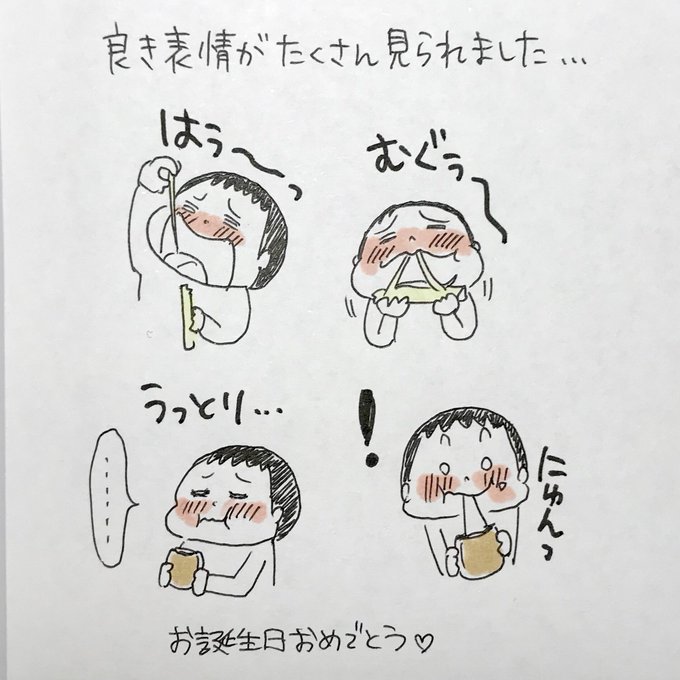 良き表情がたくさん見られました…
はぅ〜っ
むぐぅ〜
うっとり…
……
！
にゅんっ
お誕生日おめでとう♡